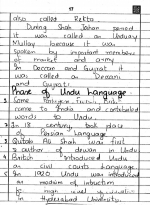 17
also called Rekta.
During Shah Jahan period
it was called an Urduay
Mullay because it was
spoken by important members
of market and army
In Deccan and Gujrat it
was called a Deccani
and Gujrati
Phase of Urdu Language
1 Some Portugese, Turkish,
came to India and contributed
words to Urdu.
2 In 18 century, took place
of Persian Language
3 Qutab Ali Shah was first
author of diwan in Urdu
4 British introduced Urdu
in civil courts language.
5 In 1920 Urdu was introduced
as medium of
for
in Hyderabad University.